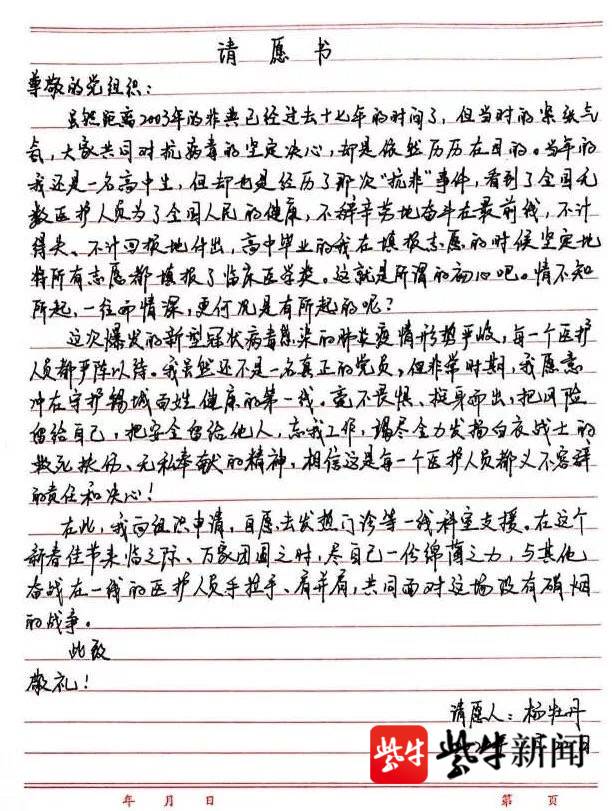 请愿书
尊敬的党组织：
虽然距离2003年的非典已经过去十七年的时间了，但当时的紧张气
氛，大家共同对抗病毒的坚定决心，却是依然历历在目的。当年的
我还是一名高中生，但却也是经历了那次“抗非”事件，看到了全国无
数医护人员为了全国人民的健康，不辞辛劳地奋斗在最前线，不计
得失、不计回报地付出，高中毕业的我在填报志愿的时候坚定地
将所有志愿都填报了临床医学类。这就是所谓的初心吧。情不知
所起，一往而情深，更何况是有所起的呢？
这次爆发的新型冠状病毒感染的肺炎疫情形势严峻，每一个医护
人员都严阵以待。我虽然还不是一名真正的党员，但非常时期，我愿意
冲在守护锡城百姓健康的第一线。毫不畏惧、挺身而出，把风险
留给自己，把安全留给他人，忘我工作，竭尽全力发扬白衣战士的
救死扶伤、无私奉献的精神，相信这是每一个医护人员都义不容辞
的责任和决心！
在此，我向组织申请，自愿去发热门诊等一线科室支援。在这个
新春佳节来临之际、万家团圆之时，尽自己一份绵薄之力，与其他
奋战在一线的医护人员手拉手、肩并肩，共同面对这场没有硝烟
的战争。
此致
敬礼！
请愿人：杨牡丹
紫牛 紫牛新闻
日
年 月 日 第 页